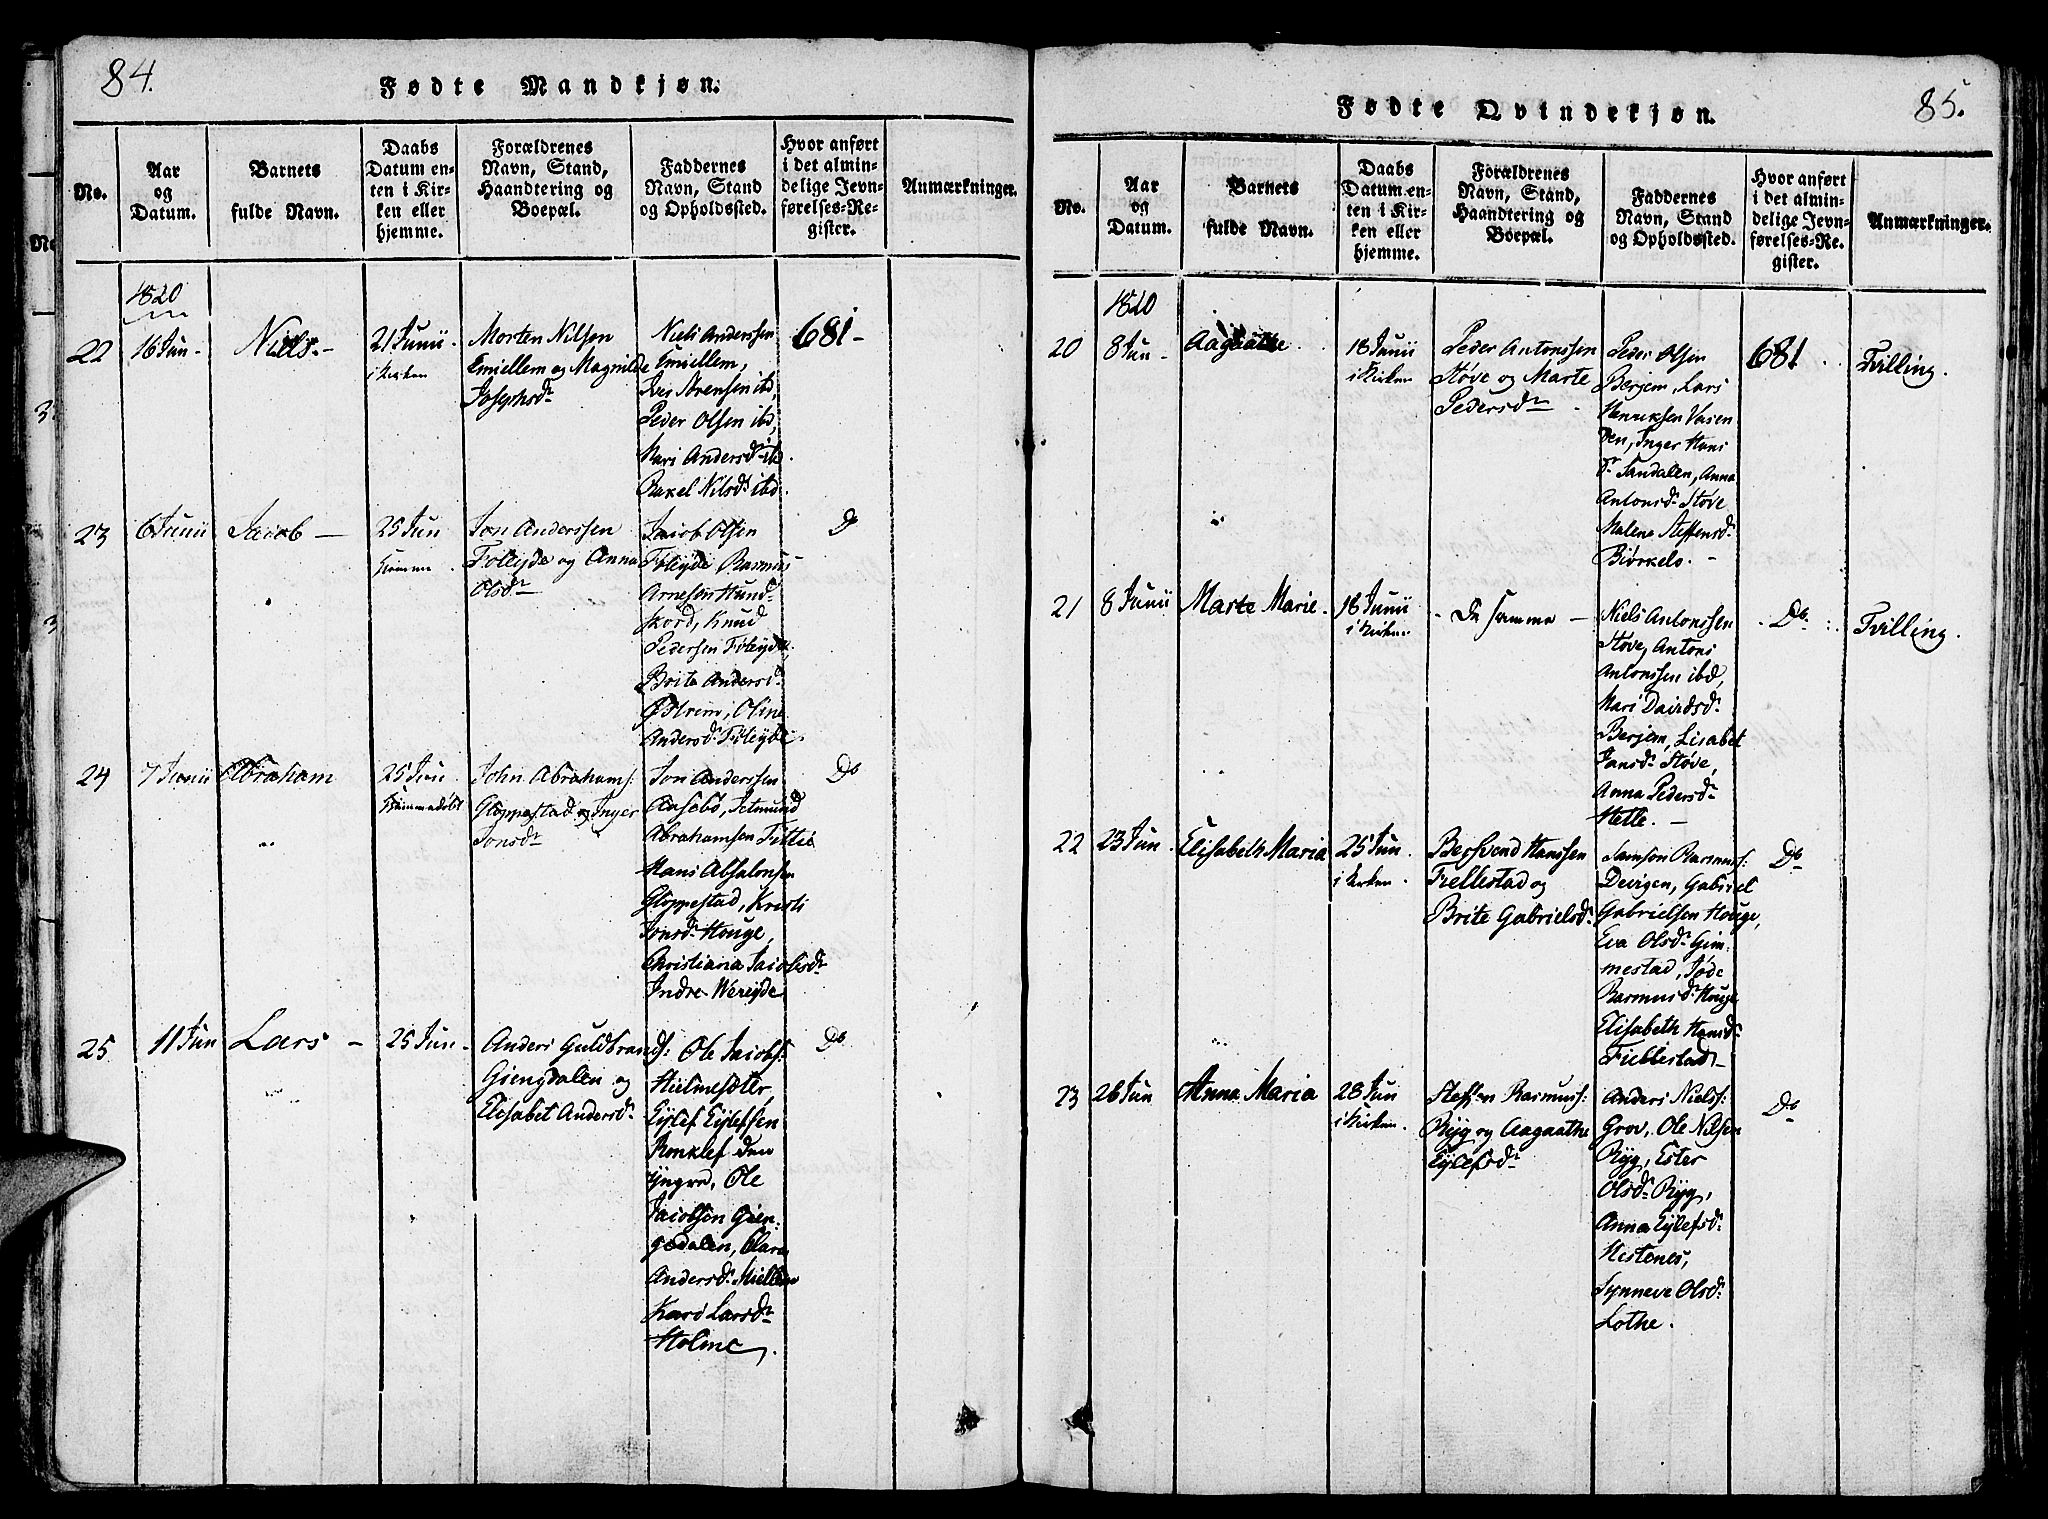 84.
Fødte Mandkjøn.
No.
Aar
og
Datum.
Barnets
fulde Navn.
Daabs
Datum en-
ten i Kir-
ken eller
hjemme.
Forældrenes
Navn, Stand,
Haandtering og
Boepæl.
Faddernes
Navn, Stand
og Opholdssted.
Hvor anført
i det almin-
delige Jevn-
førelses-Re-
gister.
Anmærkninger.
1820
22
16 Jun -
Niels -
21 Junii
i Kirken
Morten Nilsen
Emiellem og Magnilde
Josephsdr
Niels Anderssen
Emiellem,
Peder Olsen ibd,
Mari Andersdr ibd.
Raxel Nilsdr ibd.
681 -
23
6 Junii
Jacob -
25 Jun
Hiemme
Jon Anderssen
Føleyde og Anna
Olsdr
Jacob Olsen
Føleyde Rasmus
Arnesen Hund-
skord, Knud
Pedersen Føleyde,
Brite Andersdr
Østrem, Oline
Andersdr Føleyde
Do
24
7 Junii
Abraham
25 Jun
Hiemmedøbt
John Abrahams:
Gloppestad og Inger
Jonsdr
Jon Anderssen
Aasebø, Jetmund
Abrahamsen Tittie
Hans Absalonsen
Gloppestad, Kristi
Jonsdr Houge,
Christiana Jacobsdr
Indre Wereyde
Do
25
11 Jun
Lars -
25 Jun -
Anders Guldbrands:
Giengdalen og
Elisabet Andersdr
Ole Jacobs:
Hielmesæter,
Eylef Eylefsen
Ronklef den
Yngre, Ole
Jacobsen Gien-
gedalen, Clara
Andersdr Miellem
Kari Larsdr
Holme.
Do
85.
Fødte Qvindekjøn.
No.
Aar
og
Datum.
Barnets
fulde Navn.
Daabs
Datum en-
ten i Kir-
ken eller
hjemme.
Forældrenes
Navn, Stand,
Haandtering og
Boepæl.
Faddernes
Navn, Stand
og Opholdssted.
Hvor anført
i det almin-
delige Jevn-
førelses-Re-
gister.
Anmærkninger.
1820
20
8 Jun -
Aagaathe
18 Junii
i Kirken
Peder Antonssen
Støve og Marte
Pedersdr
Peder Olsen
Berjem, Lars
Henriksen Vasen
den, Inger Hans
dr Sandalen, Anna
Antonsdr Støve
Malene Steffensdr
Biørkelo. -
681.
Tvilling.
21
8 Junii
Marte Marie.
18 Junii
i Kirken
- De samme -
Niels Antonssen
Støve, Antoni
Antonssen ibd,
Mari Davidsdr
Berjem, Lisabet
Jansdr Støve,
Anna Pedersdr
Hetle. -
Do
Tvilling.
22
23 Jun
Elisabeth Maria
25 Jun
i Kirken.
Bersvend Hanssen
Fiellestad og
Brite Gabrielsdr
Samson Rasmus:
Devigen, Gabriel
Gabrielsen Houge,
Eva Olsdr Gim-
mestad, Jøde
Rasmusdr Houge
Elisabeth Hansdr
Fiellestad -
Do
23
26 Jun
Anna Maria
28 Jun
i Kirken
Steffen Rasmus:
Ryg og Aagaathe
Eylefsdr
Anders Niels:
Grov, Ole Nilsen
Ryg, Ester
Olsdr Ryg,
Anna Eylefsdr
Hestenes,
Synneve Olsdr
Lothe.
Do